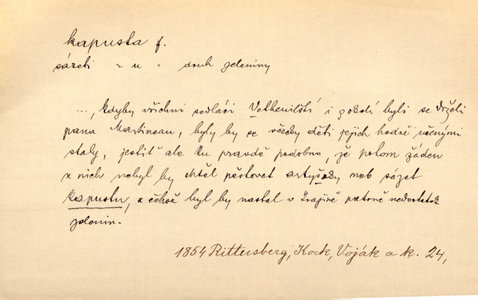 kapusta f.
sázeti ~ u - druh zeleniny
..., kdyby všichni sedláci Vethenilští i z okolí byli se drželi
pana Martineau, byly by se všecky děti jejich hodně učenými
staly, jestiť ale ku pravdě podobno, že potom žáden
z nich nebyl by chtěl pěstovat artyčoky neb sázet
kapustu, z čehož byl by nastal v krajině patrně nedostatek
zelenin.
1854 Rittersberg, Kock, Voják a k. 24,